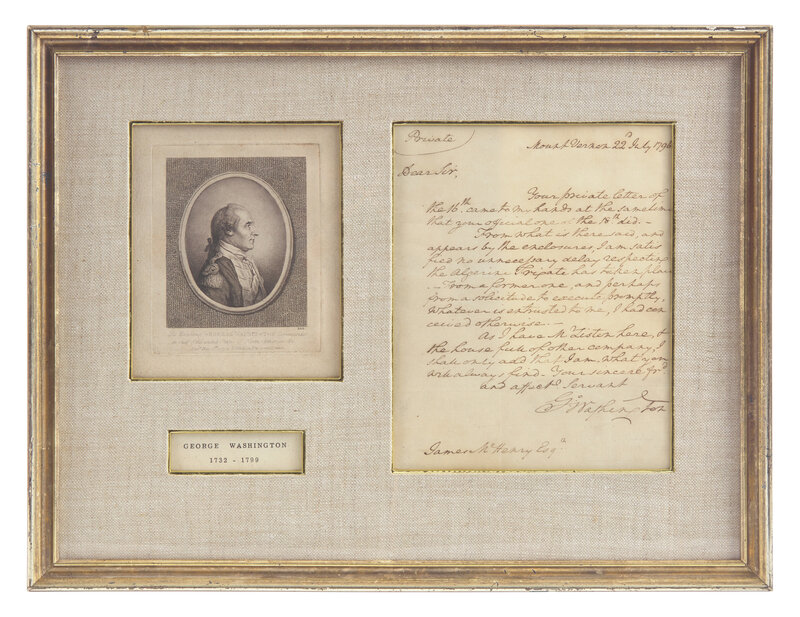 GEORGE WASHINGTON
1732 - 1799
Private
Mount Vernon 22d July 1796
Dear Sir,
Your private letter of
the 16th came to my hands at the same time
that your official one of the 18th did.—
From what is there said, and
appears by the enclosures, I am satis
fied no unnecessary delay respecting
the Algerine Frigate has taken place
.— From a former one, and perhaps
from a solicitude to execute promptly,
whatever is entrusted to me, I had con
ceived otherwise.—
As I have Mr Liston here, &
the house full of other company, I
shall only add that I am, what you
will always find— Your sincere frd
and affecte Servant
Go Washington
James McHenry Esqr